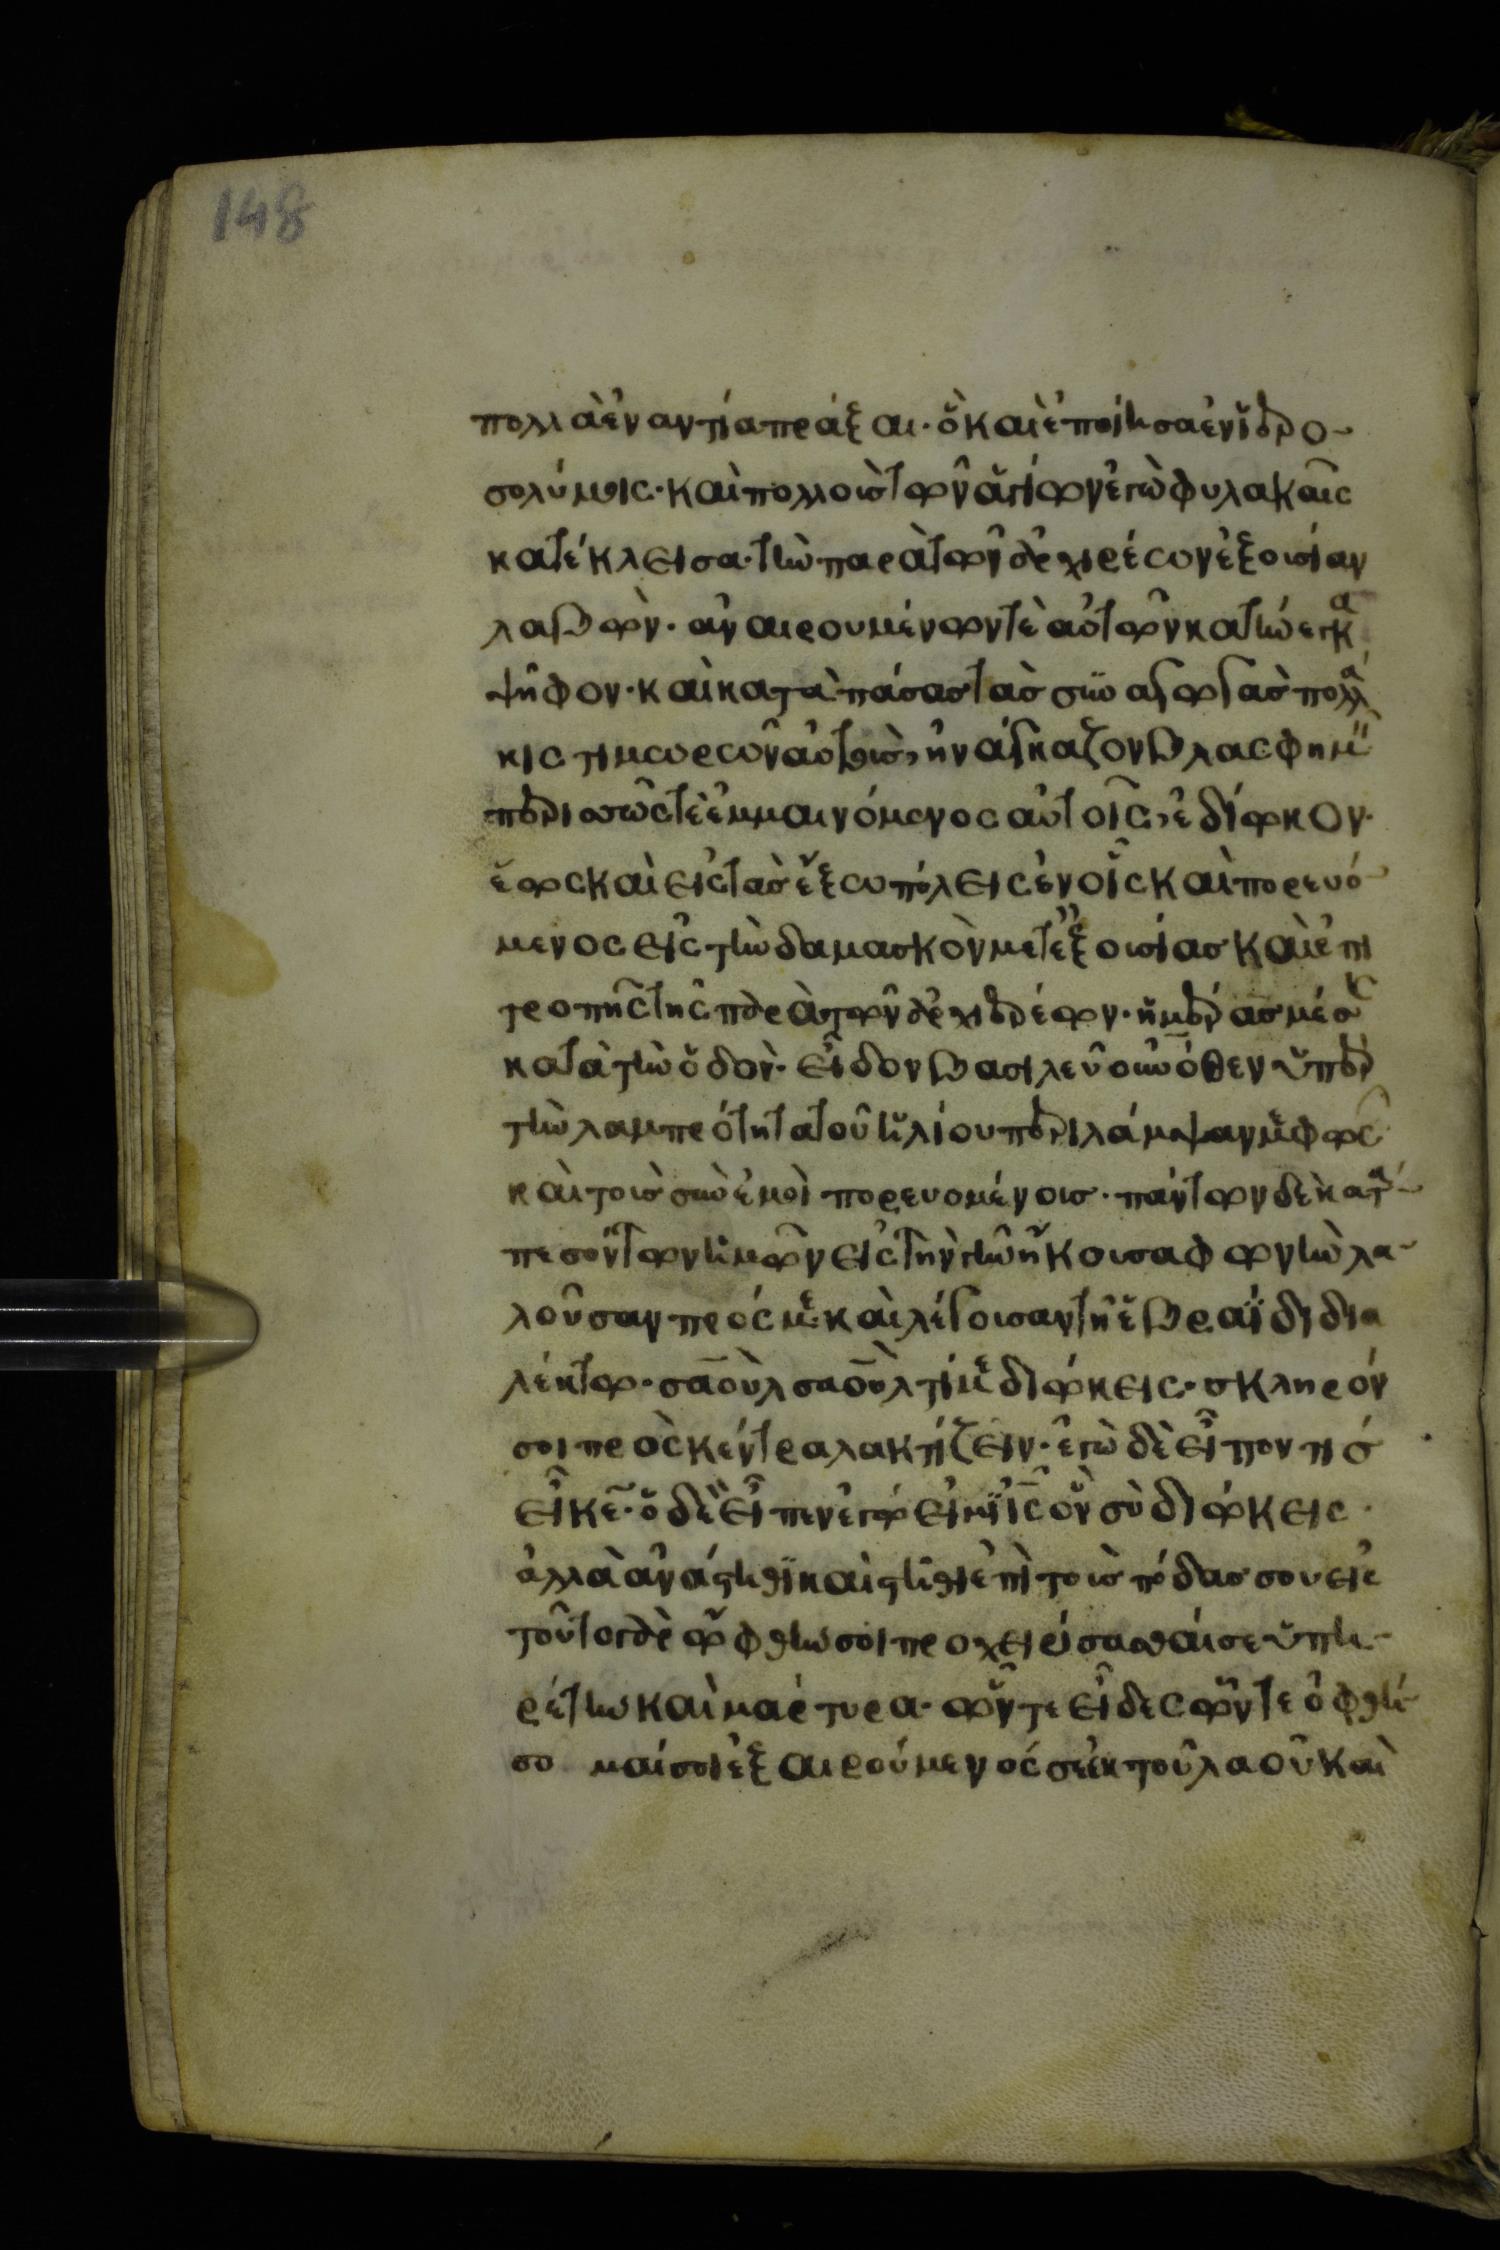 148
πολλὰ ἐναντία πρᾶξαι· ὃ καὶ ἐποίησα ἐν ἱερο
σολύμοις· καὶ πολλοὺς τῶν ἁγίων ἐγὼ φυλακαῖς
κατέκλεισα· τὴν παρὰ τῶν ἀρχιερέων ἐξουσίαν
λαβὼν· ἀναιρουμένων τὲ αὐτῶν κατήνεγκα
ψῆφον· καὶ κατὰ πάσας τὰς συναγωγὰς πολλά
κις τιμωρῶν αὐτοὺς, ἠνάγκαζον βλασφημεῖν
περισσῶς τὲ ἐμμαινόμενος αὐτοῖς, ἐδίωκον·
ἕως καὶ εἰς τὰς ἔξω πόλεις ἐν οἷς καὶ πορευό
μενος εἰς τὴν δαμασκὸν μετ' ἐξουσίας καὶ ἐπι
τροπῆς τῆς παρὰ τῶν ἀρχιερέων· ἡμέρας μέσης
κατὰ τὴν ὁδὸν· εἶδον βασιλεῦ οὐνόθεν ὑπὲρ
τὴν λαμπρότητα τοῦ ἡλίου περιλάμψαν με φῶς
καὶ τοὺς σὺν ἐμοὶ πορευομένους· πάντων δὲ κατα
πεσόντων ἡμῶν εἰς τὴν γῆν ἤκουσα φωνὴν λα
λοῦσαν πρός με καὶ λέγουσαν τῇ ἑβραΐδι δια
λέκτῳ· σαοὺλ σαοὺλ τί με διώκεις· σκληρόν
σοι πρὸς κέντρα λακτίζειν· ἐγὼ δὲ εἶπον τίς
εἶ κε· ὁ δὲ εἶπεν ἐγώ εἰμι ις ὃν σὺ διώκεις·
ἀλλὰ ἀνάστηθι καὶ στῆθι ἐπὶ τοὺς πόδας σου εἰς
τοῦτο γὰρ ὤφθην σοι προχειρίσασθαί σε ὑπη
ρέτην καὶ μάρτυρα· ὧν τε εἶδες ὧν τε ὀφθή
σομαί σοι ἐξαιρούμενός σε ἐκ τοῦ λαοῦ καὶ